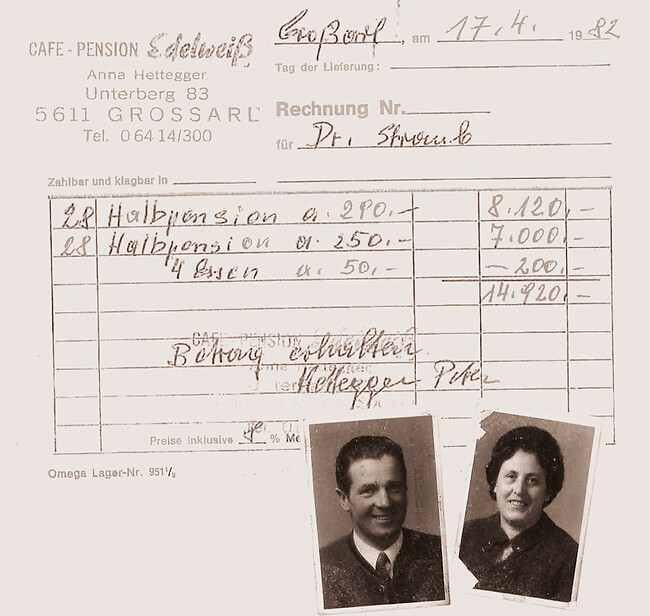 CAFE - PENSION Edelweiß
Anna Hettegger
Unterberg 83
5611 GROSSARL
Tel. 0 64 14/300
Großarl, am 17.4. 1982
Tag der Lieferung:
Rechnung Nr.
für Dr. Stromb
Zahlbar und klagbar in
28 Halbpension a. 290.– 8.120,–
28 Halbpension a. 250.– 7.000,–
4 Essen a. 50.– – 200,–
14.920,–
CAFE - PENSION Edelweiß
Betrag erhalten
Hettegger Peter
Preise inklusive % Me
Omega Lager-Nr. 951½